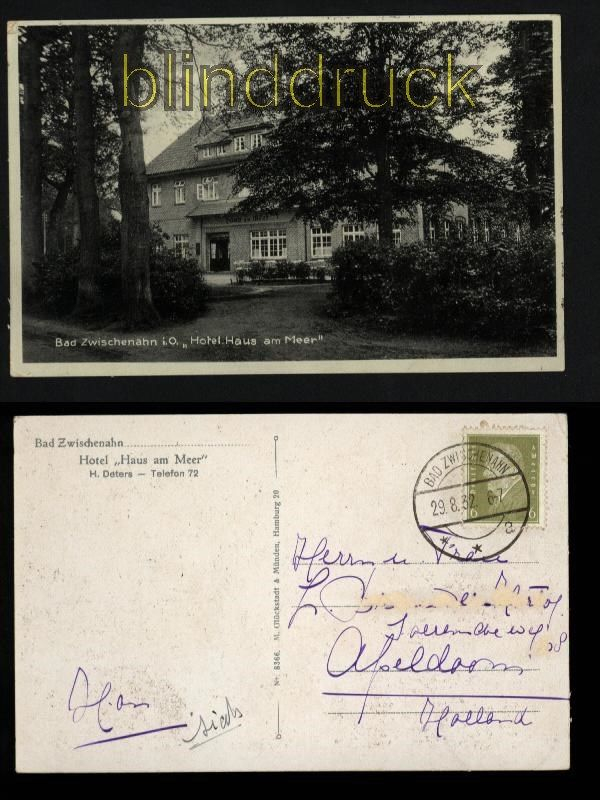 blinddruck
Bad Zwischenahn i.O. „Hotel Haus am Meer"
Bad Zwischenahn
Hotel „Haus am Meer"
H. Deters — Telefon 72
Nr. 8366. M. Glückstadt & Münden, Hamburg 20
BAD ZWISCHENAHN
29.8.32. 6-7
a
6 6
Herrn u. Frau
Apeldoorn
Holland